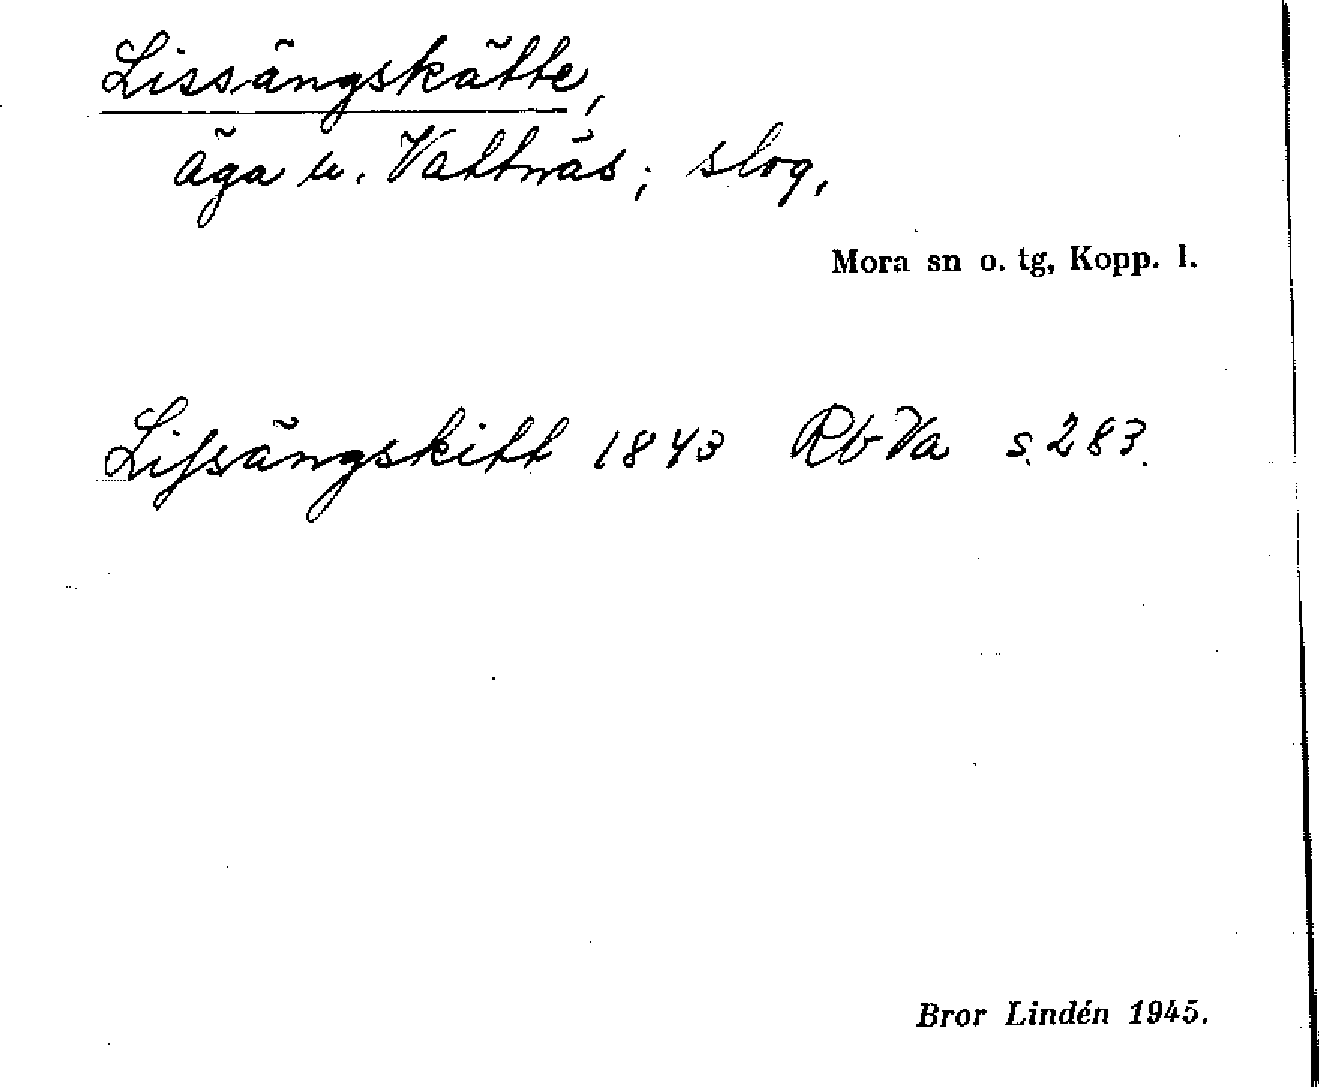 Lissängskätte,
äga u. Vattnäs; slog,
Mora sn o. tg, Kopp. l.
Lissängskitt 1843 Rb Va s. 283.
Bror Lindén 1945.